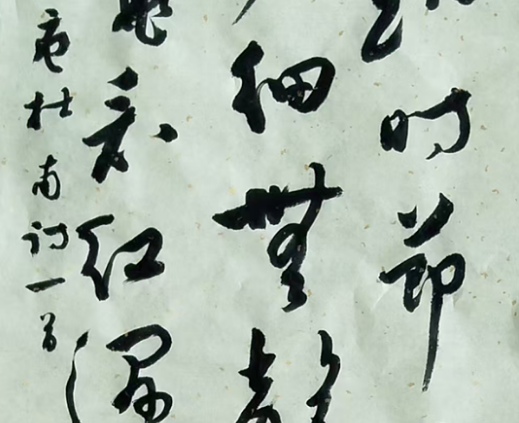 时節
细無
看红湿
唐杜甫诗一首